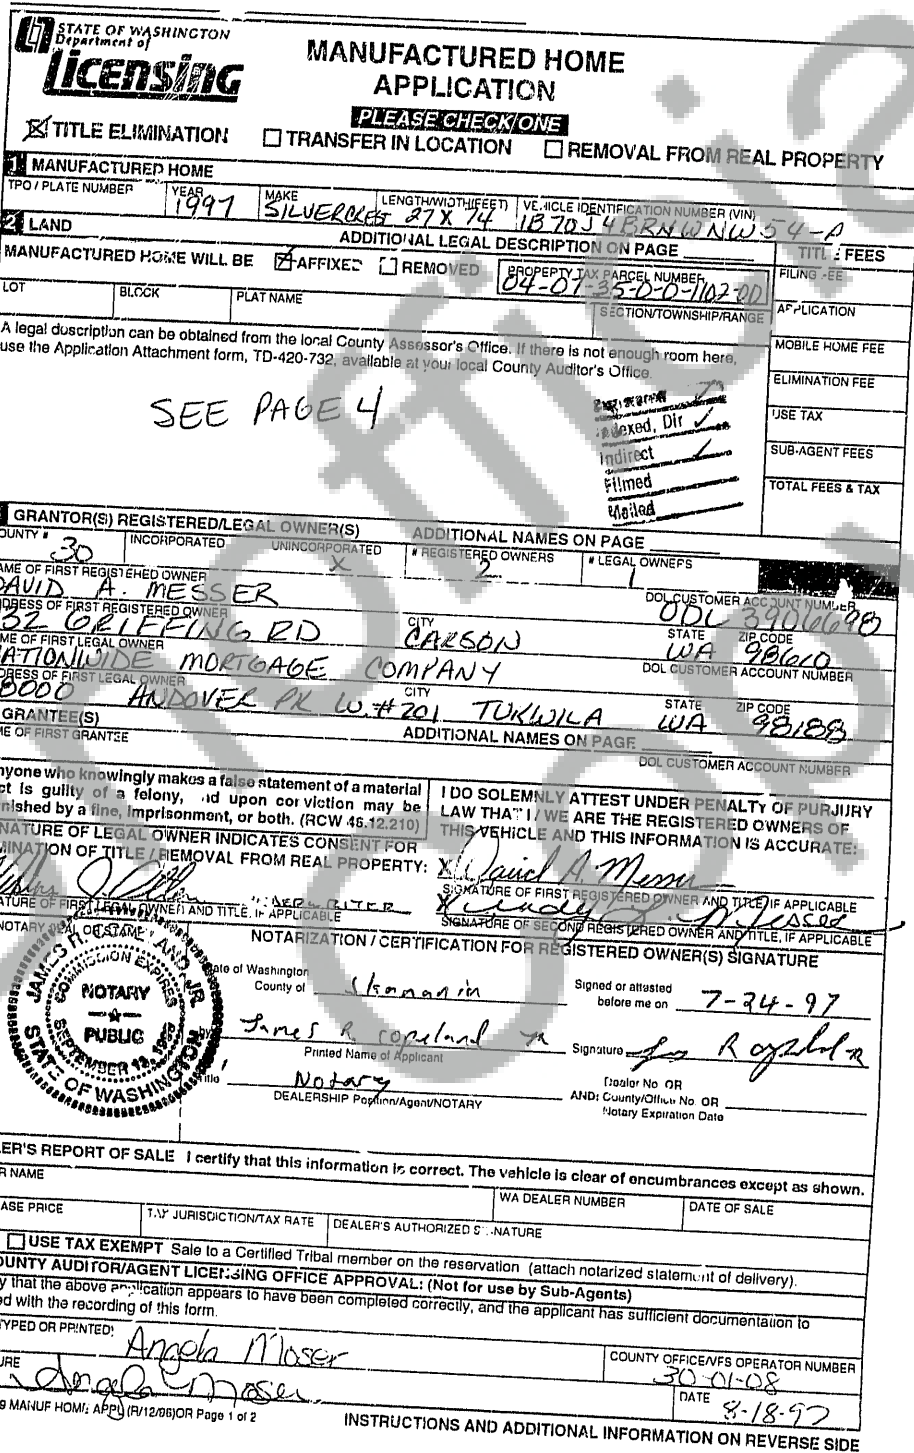 STATE OF WASHINGTON
Department of
Licensing
MANUFACTURED HOME
APPLICATION
PLEASE CHECK ONE
TITLE ELIMINATION TRANSFER IN LOCATION REMOVAL FROM REAL PROPERTY
1 MANUFACTURED HOME
TPO / PLATE NUMBER YEAR MAKE LENGTH/WIDTH(FEET) VEHICLE IDENTIFICATION NUMBER (VIN)
1997 SILVERCREST 27 X 74
2 LAND ADDITIONAL LEGAL DESCRIPTION ON PAGE TITLE FEES
MANUFACTURED HOME WILL BE AFFIXED REMOVED PROPERTY TAX PARCEL NUMBER FILING FEE
04-07-35-0-0-1102-00
LOT BLOCK PLAT NAME SECTION/TOWNSHIP/RANGE APPLICATION
A legal description can be obtained from the local County Assessor's Office. If there is not enough room here, MOBILE HOME FEE
use the Application Attachment form, TD-420-732, available at your local County Auditor's Office.
ELIMINATION FEE
SEE PAGE 4
USE TAX
Indexed, Dir
Indirect SUB-AGENT FEES
Filmed
TOTAL FEES & TAX
Mailed
GRANTOR(S) REGISTERED/LEGAL OWNER(S) ADDITIONAL NAMES ON PAGE
OUNTY # INCORPORATED UNINCORPORATED # REGISTERED OWNERS # LEGAL OWNERS
30 X 2 1
AME OF FIRST REGISTERED OWNER DOL CUSTOMER ACCOUNT NUMBER
DAVID A. MESSER ODL 3906698
DDRESS OF FIRST REGISTERED OWNER CITY STATE ZIP CODE
52 GRIFFING RD CARSON WA 98610
ME OF FIRST LEGAL OWNER DOL CUSTOMER ACCOUNT NUMBER
NATIONWIDE MORTGAGE COMPANY
DRESS OF FIRST LEGAL OWNER CITY STATE ZIP CODE
8000 ANDOVER PK W. #201 TUKWILA WA 98188
GRANTEE(S) ADDITIONAL NAMES ON PAGE
ME OF FIRST GRANTEE DOL CUSTOMER ACCOUNT NUMBER
nyone who knowingly makes a false statement of a material
ct is guilty of a felony, and upon conviction may be
nished by a fine, imprisonment, or both. (RCW 46.12.210)
I DO SOLEMNLY ATTEST UNDER PENALTY OF PURJURY
LAW THAT I / WE ARE THE REGISTERED OWNERS OF
THIS VEHICLE AND THIS INFORMATION IS ACCURATE:
NATURE OF LEGAL OWNER INDICATES CONSENT FOR
MINATION OF TITLE / REMOVAL FROM REAL PROPERTY:
X David A. Messer
SIGNATURE OF FIRST REGISTERED OWNER AND TITLE, IF APPLICABLE
ATURE OF FIRST LEGAL OWNER AND TITLE, IF APPLICABLE
SIGNATURE OF SECOND REGISTERED OWNER AND TITLE, IF APPLICABLE
NOTARY SEAL OR STAMP
NOTARIZATION / CERTIFICATION FOR REGISTERED OWNER(S) SIGNATURE
COMMISSION EXPIRES
NOTARY
PUBLIC
STATE OF WASHINGTON
State of Washington
County of Skamania
Signed or attested
before me on 7-24-97
by James R Copeland Jr
Printed Name of Applicant
Signature
Title Notary
DEALERSHIP Position/Agent/NOTARY
Dealer No. OR
AND: County/Office No. OR
Notary Expiration Date
LER'S REPORT OF SALE I certify that this information is correct. The vehicle is clear of encumbrances except as shown.
R NAME WA DEALER NUMBER DATE OF SALE
ASE PRICE TAX JURISDICTION/TAX RATE DEALER'S AUTHORIZED SIGNATURE
USE TAX EXEMPT Sale to a Certified Tribal member on the reservation (attach notarized statement of delivery).
OUNTY AUDITOR/AGENT LICENSING OFFICE APPROVAL: (Not for use by Sub-Agents)
y that the above application appears to have been completed correctly, and the applicant has sufficient documentation to
ed with the recording of this form.
TYPED OR PRINTED) Angela Moser
COUNTY OFFICE/VFS OPERATOR NUMBER
30-01-08
URE Angela Moser
DATE 8-18-97
9 MANUF HOME APPL (R/12/96)OR Page 1 of 2
INSTRUCTIONS AND ADDITIONAL INFORMATION ON REVERSE SIDE